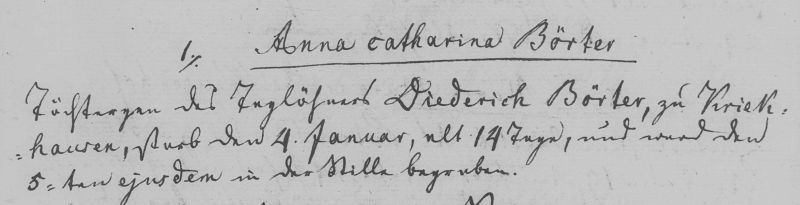 1/. Anna catharina Börter
Töchtergen des Taglöhners Diederich Börter, zu Kriek-
-hausen, starb den 4. Januar, alt 14 Tage, und ward den
5-ten ejusdem in der Stille begraben.